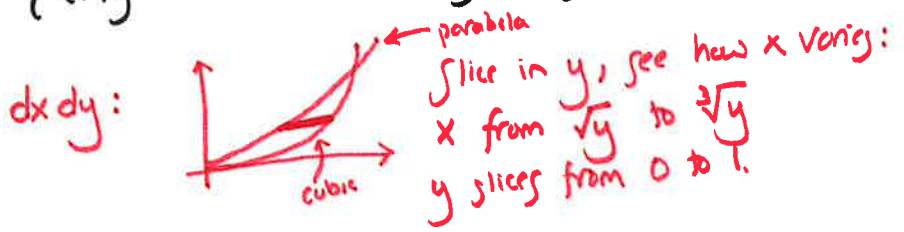 dx dy:
← parabola
slice in y, see how x varies:
x from √y to ∛y
y slices from 0 to 1.
cubic